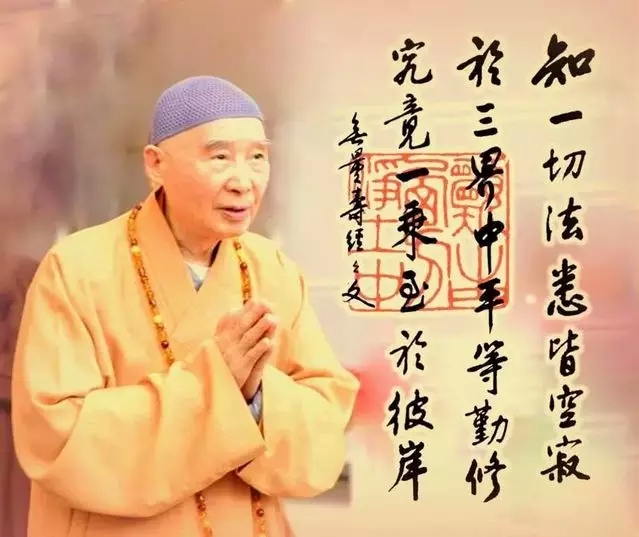 知一切法悉皆空寂
於三界中平等勤修
究竟一乘至於彼岸
無量壽經之文